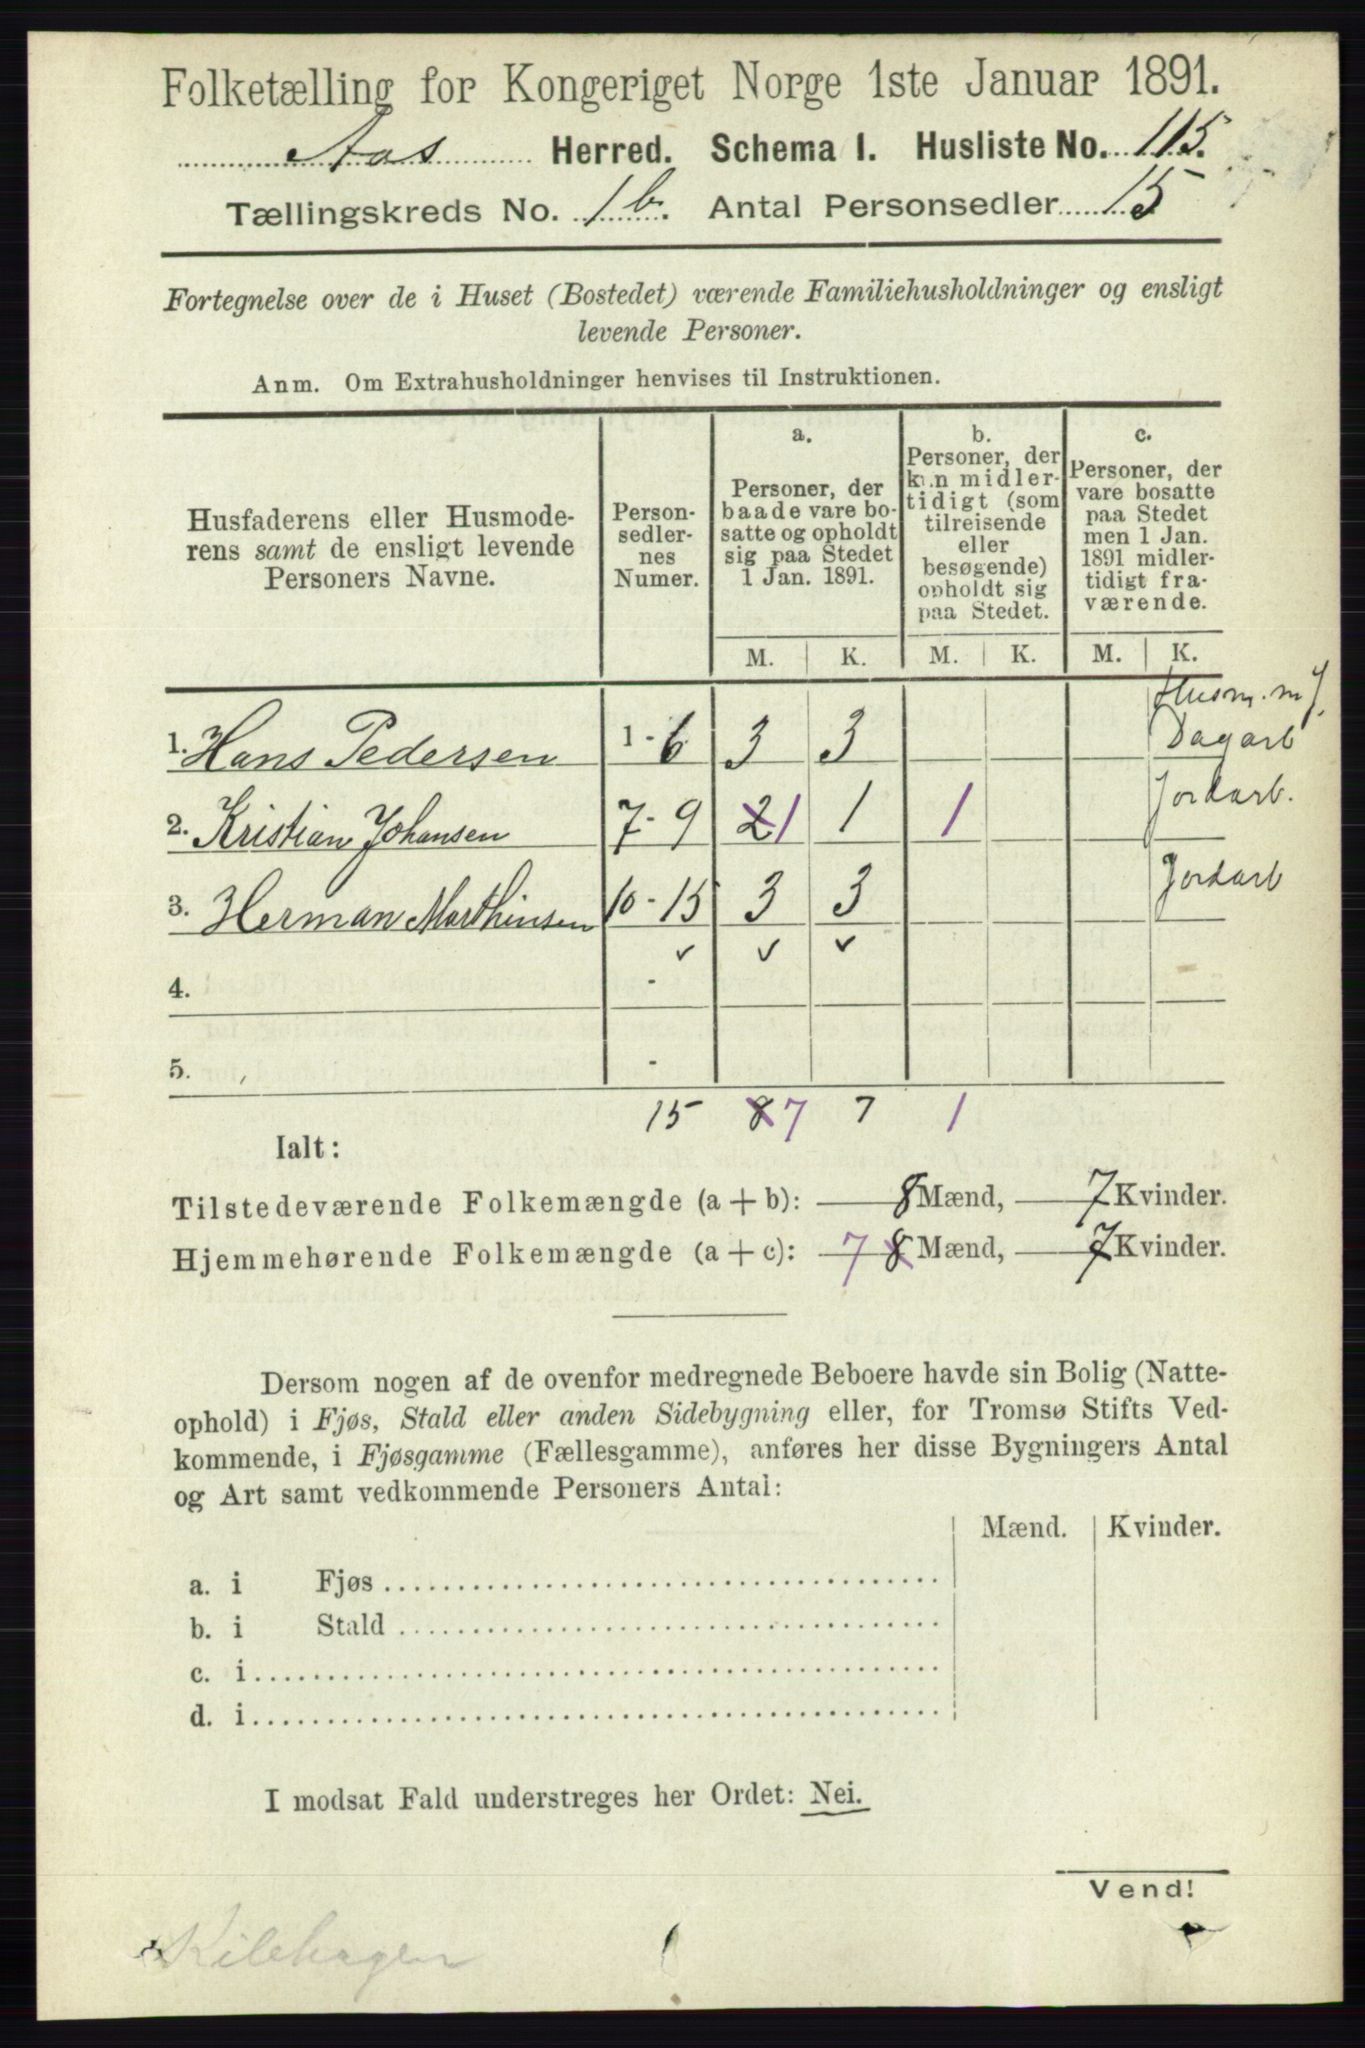 Folketælling for Kongeriget Norge 1ste Januar 1891.
Aas Herred. Schema I. Husliste No. 115.
Tællingskreds No. 1b. Antal Personsedler 15
Fortegnelse over de i Huset (Bostedet) værende Familiehusholdninger og ensligt
levende Personer.
Anm. Om Extrahusholdninger henvises til Instruktionen.
Husfaderens eller Husmode-
rens samt de ensligt levende
Personers Navne.
Person-
sedler-
nes
Numer.
a.
Personer, der
baade vare bo-
satte og opholdt
sig paa Stedet
1 Jan. 1891.
b.
Personer, der
kun midler-
tidigt (som
tilreisende
eller
besøgende)
opholdt sig
paa Stedet.
c.
Personer, der
vare bosatte
paa Stedet
men 1 Jan.
1891 midler-
tidigt fra-
værende.
M. K. M. K. M. K.
Husm. m. J.
1. Hans Pedersen 1 - 6 3 3 Dagarb
2. Kristian Johansen 7 - 9 2 1 1 1 Jordarb.
3. Herman Marthinsen 10 - 15 3 3 Jordarb
✓ ✓ ✓
4. -
5. -
15 8 7 7 1
Ialt:
Tilstedeværende Folkemængde (a + b): 8 Mænd, 7 Kvinder.
Hjemmehørende Folkemængde (a + c): 7 8 Mænd, 7 Kvinder.
Dersom nogen af de ovenfor medregnede Beboere havde sin Bolig (Natte-
ophold) i Fjøs, Stald eller anden Sidebygning eller, for Tromsø Stifts Ved-
kommende, i Fjøsgamme (Fællesgamme), anføres her disse Bygningers Antal
og Art samt vedkommende Personers Antal:
Mænd. Kvinder.
a. i Fjøs
b. i Stald
c. i
d. i
I modsat Fald understreges her Ordet: Nei.
Vend!
Kilehagen